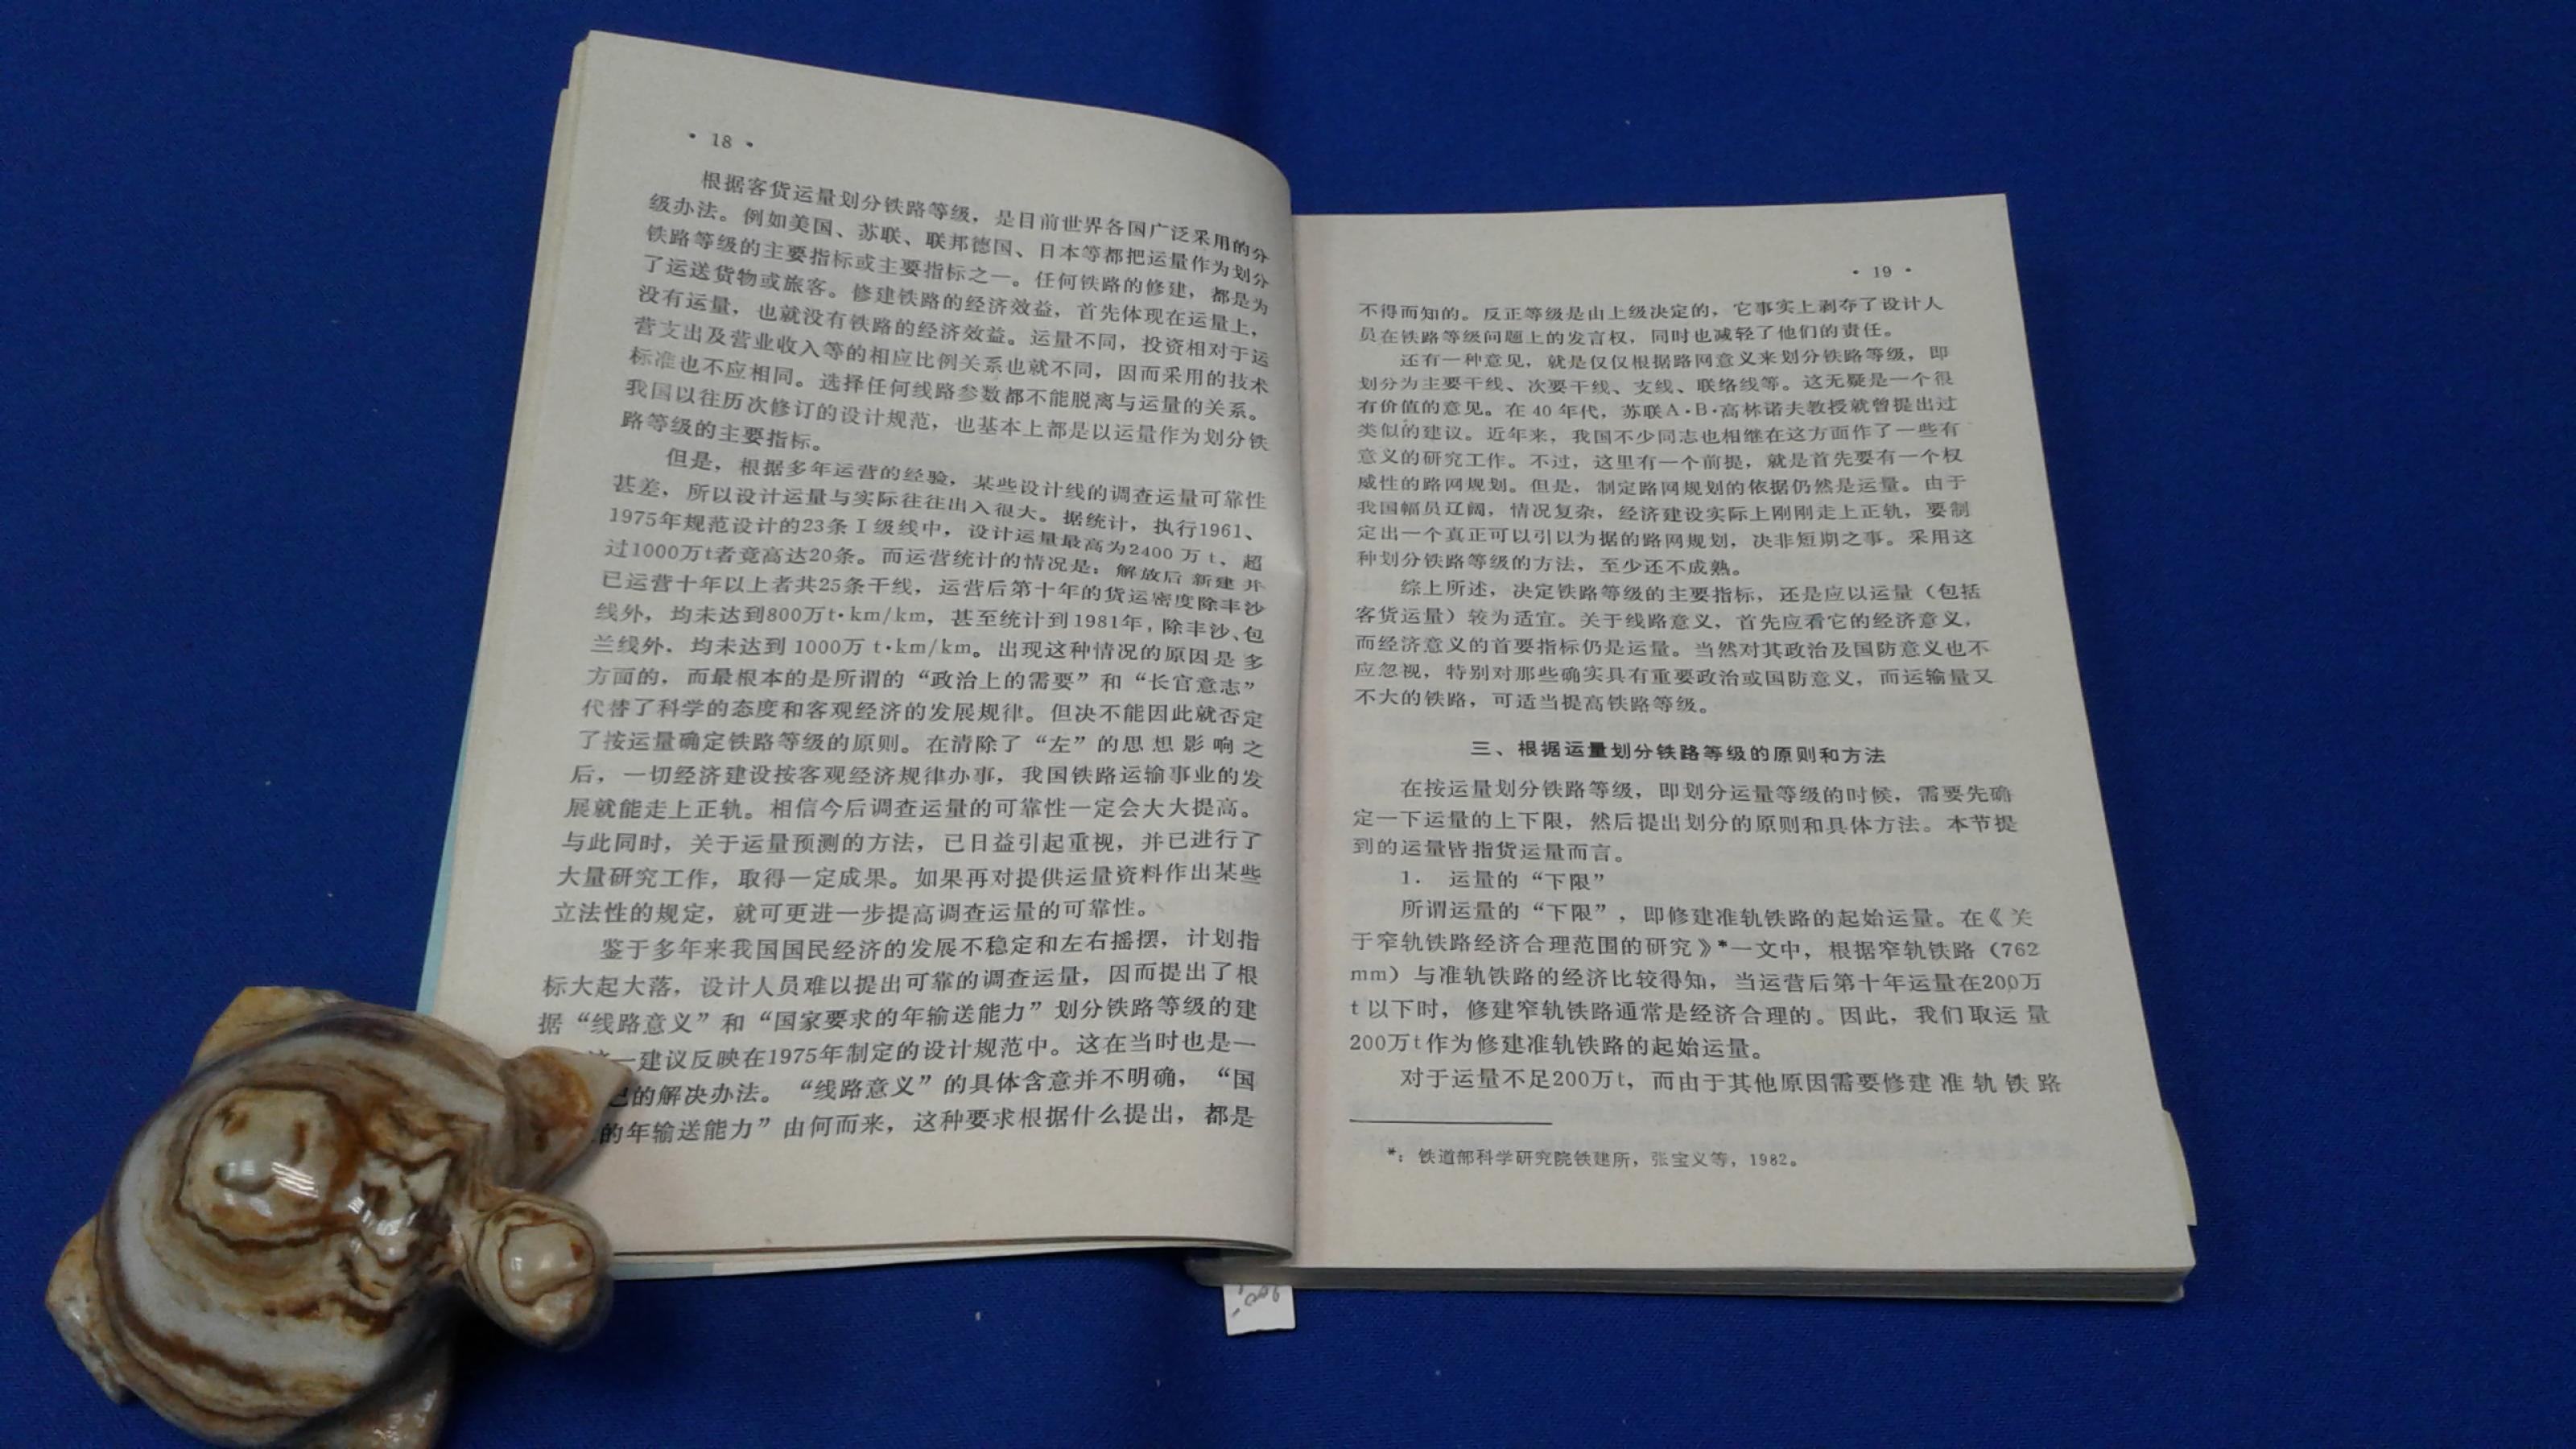 · 18 ·
根据客货运量划分铁路等级，是目前世界各国广泛采用的分
级办法。例如美国、苏联、联邦德国、日本等都把运量作为划分
铁路等级的主要指标或主要指标之一。任何铁路的修建，都是为
了运送货物或旅客。修建铁路的经济效益，首先体现在运量上，
没有运量，也就没有铁路的经济效益。运量不同，投资相对于运
营支出及营业收入等的相应比例关系也就不同，因而采用的技术
标准也不应相同。选择任何线路参数都不能脱离与运量的关系。
我国以往历次修订的设计规范，也基本上都是以运量作为划分铁
路等级的主要指标。
但是，根据多年运营的经验，某些设计线的调查运量可靠性
甚差，所以设计运量与实际往往出入很大。据统计，执行1961、
1975年规范设计的23条Ⅰ级线中，设计运量最高为2400万t，超
过1000万t者竟高达20条。而运营统计的情况是：解放后新建并
已运营十年以上者共25条干线，运营后第十年的货运密度除丰沙
线外，均未达到800万t·km/km，甚至统计到1981年，除丰沙、包
兰线外，均未达到1000万t·km/km。出现这种情况的原因是多
方面的，而最根本的是所谓的“政治上的需要”和“长官意志”
代替了科学的态度和客观经济的发展规律。但决不能因此就否定
了按运量确定铁路等级的原则。在清除了“左”的思想影响之
后，一切经济建设按客观经济规律办事，我国铁路运输事业的发
展就能走上正轨。相信今后调查运量的可靠性一定会大大提高。
与此同时，关于运量预测的方法，已日益引起重视，并已进行了
大量研究工作，取得一定成果。如果再对提供运量资料作出某些
立法性的规定，就可更进一步提高调查运量的可靠性。
鉴于多年来我国国民经济的发展不稳定和左右摇摆，计划指
标大起大落，设计人员难以提出可靠的调查运量，因而提出了根
据“线路意义”和“国家要求的年输送能力”划分铁路等级的建
一建议反映在1975年制定的设计规范中。这在当时也是一
已的解决办法。“线路意义”的具体含意并不明确，“国
的年输送能力”由何而来，这种要求根据什么提出，都是
· 19 ·
不得而知的。反正等级是由上级决定的，它事实上剥夺了设计人
员在铁路等级问题上的发言权，同时也减轻了他们的责任。
还有一种意见，就是仅仅根据路网意义来划分铁路等级，即
划分为主要干线、次要干线、支线、联络线等。这无疑是一个很
有价值的意见。在40年代，苏联A·B·高林诺夫教授就曾提出过
类似的建议。近年来，我国不少同志也相继在这方面作了一些有
意义的研究工作。不过，这里有一个前提，就是首先要有一个权
威性的路网规划。但是，制定路网规划的依据仍然是运量。由于
我国幅员辽阔，情况复杂，经济建设实际上刚刚走上正轨，要制
定出一个真正可以引以为据的路网规划，决非短期之事。采用这
种划分铁路等级的方法，至少还不成熟。
综上所述，决定铁路等级的主要指标，还是应以运量（包括
客货运量）较为适宜。关于线路意义，首先应看它的经济意义，
而经济意义的首要指标仍是运量。当然对其政治及国防意义也不
应忽视，特别对那些确实具有重要政治或国防意义，而运输量又
不大的铁路，可适当提高铁路等级。
三、根据运量划分铁路等级的原则和方法
在按运量划分铁路等级，即划分运量等级的时候，需要先确
定一下运量的上下限，然后提出划分的原则和具体方法。本节提
到的运量皆指货运量而言。
1. 运量的“下限”
所谓运量的“下限”，即修建准轨铁路的起始运量。在《关
于窄轨铁路经济合理范围的研究》*一文中，根据窄轨铁路（762
mm）与准轨铁路的经济比较得知，当运营后第十年运量在200万
t以下时，修建窄轨铁路通常是经济合理的。因此，我们取运量
200万t作为修建准轨铁路的起始运量。
对于运量不足200万t，而由于其他原因需要修建准轨铁路
*：铁道部科学研究院铁建所，张宝义等，1982。